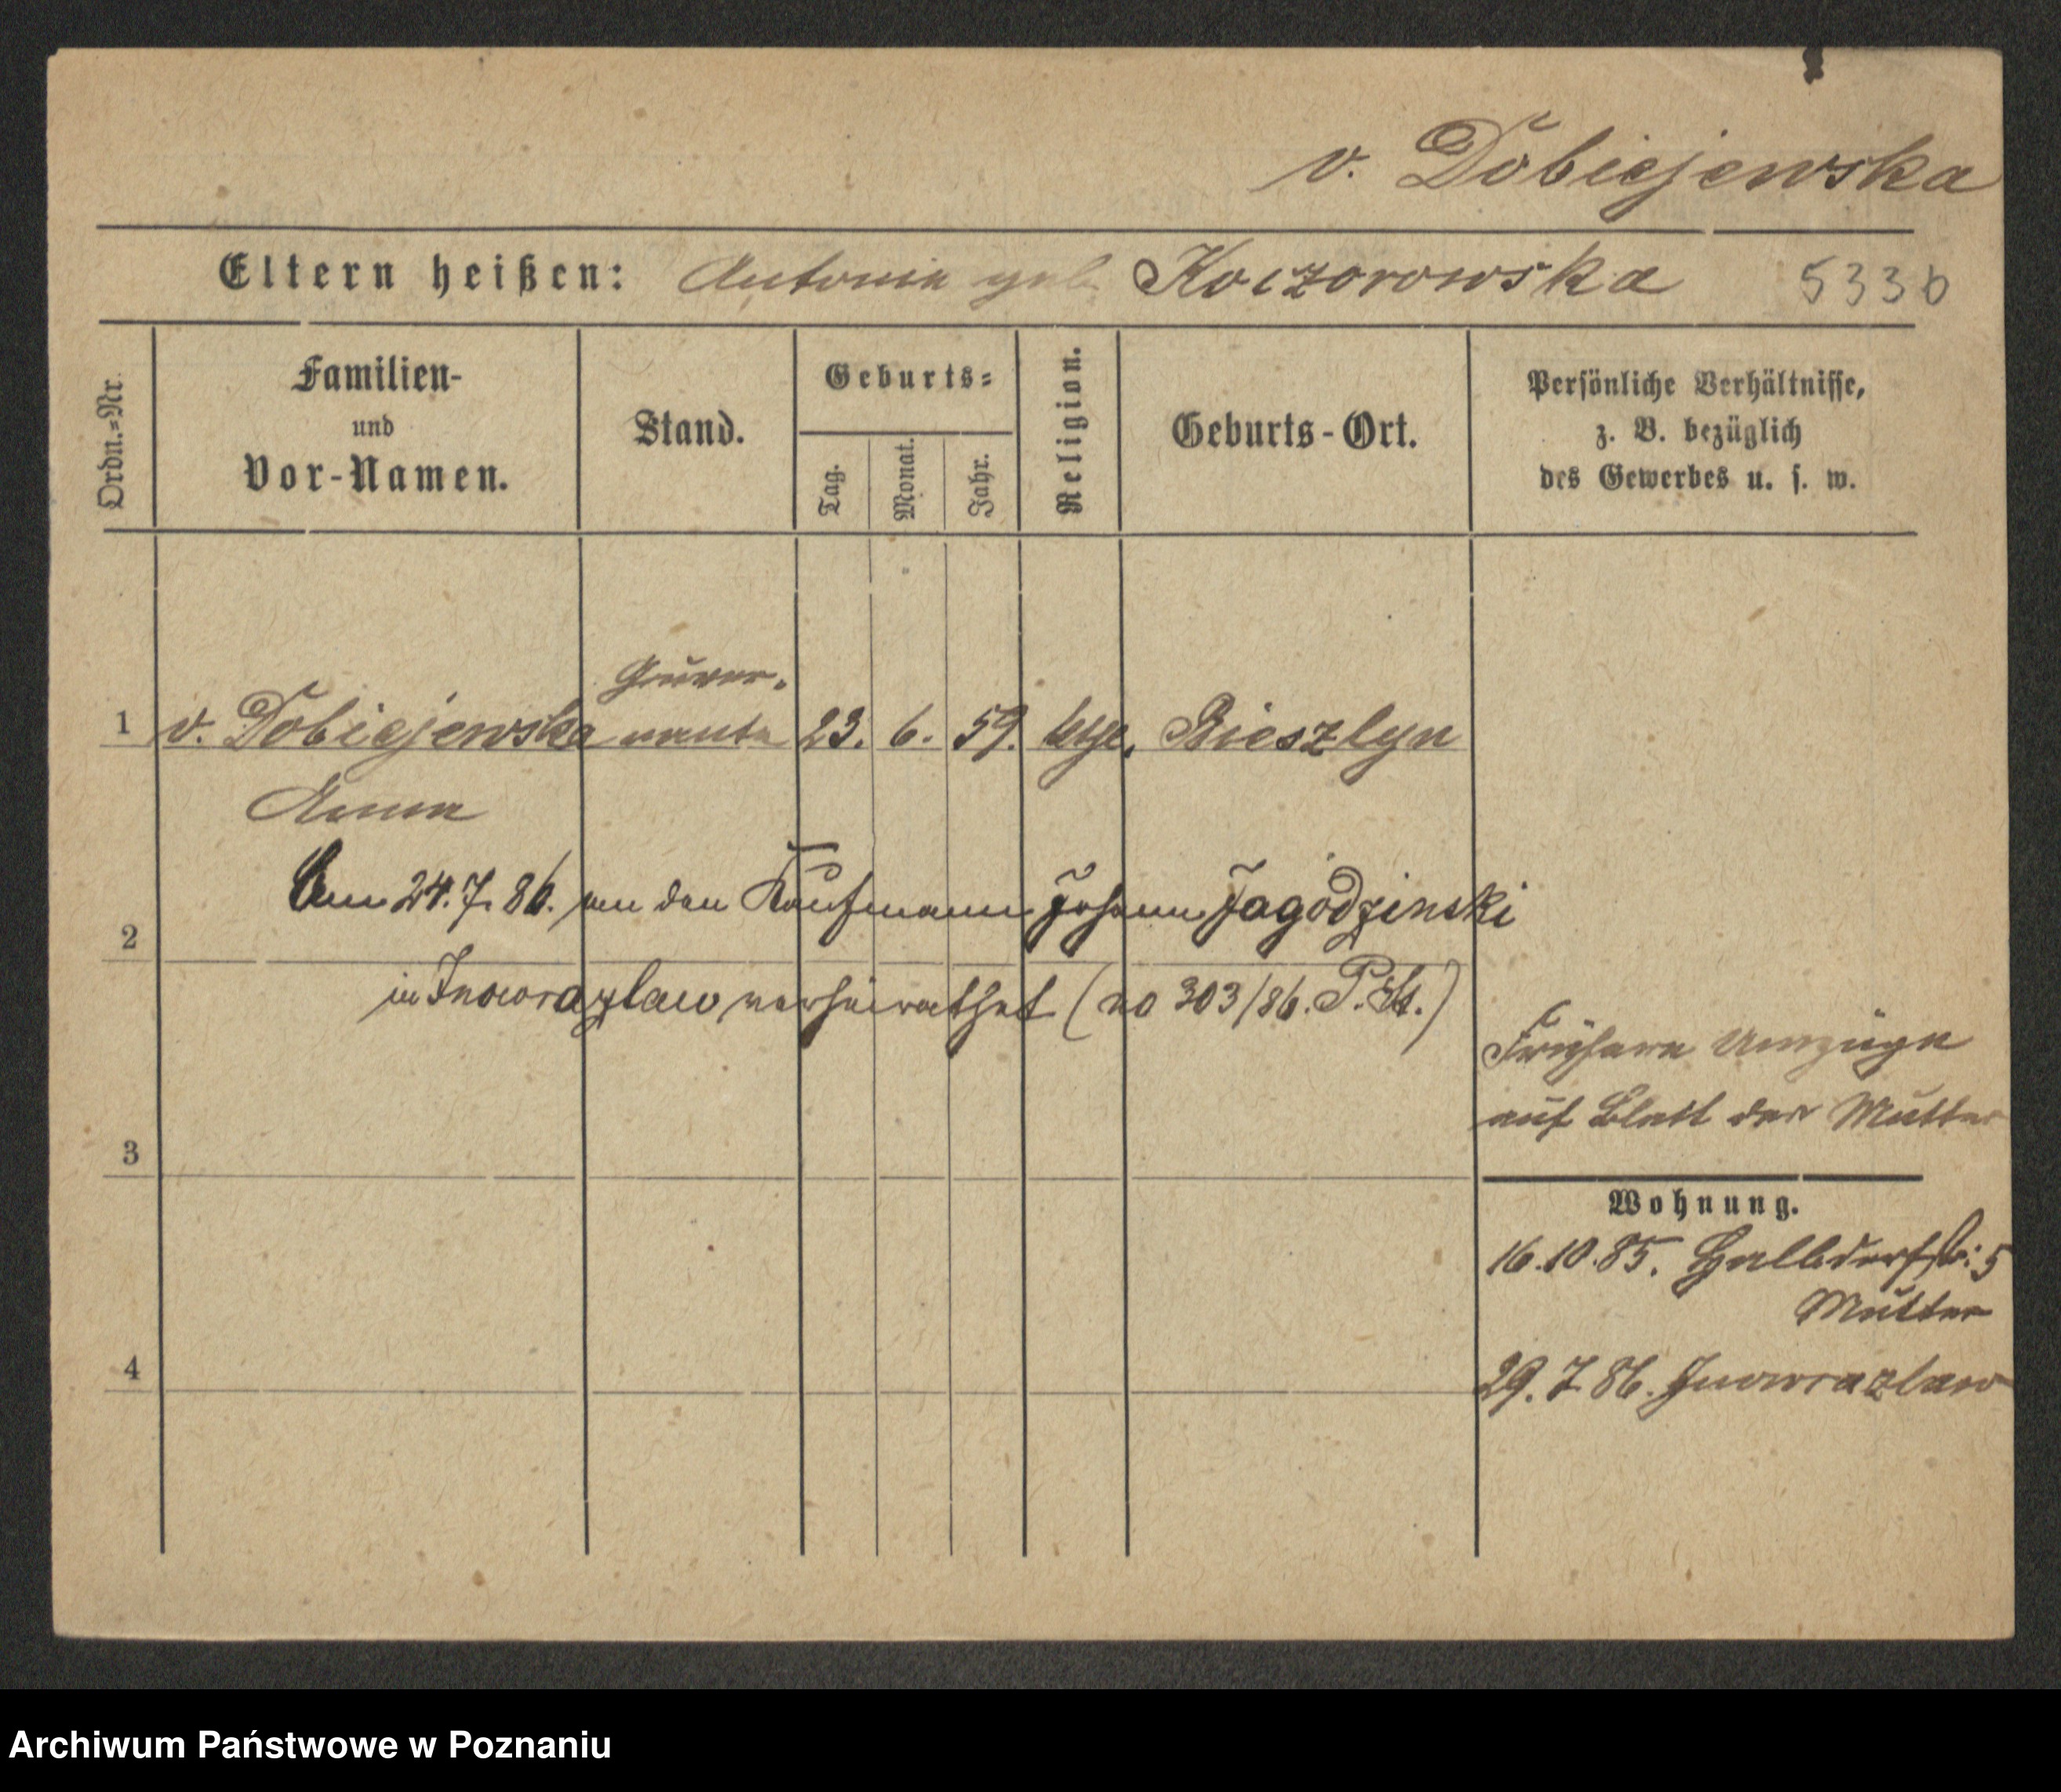 v. Dobiejewska
Eltern heißen: Antonie geb. Koczorowska 5336
Ordn.=Nr.
Familien-
und
Vor-Namen.
Stand.
Geburts=
Tag.
Monat.
Jahr.
Religion.
Geburts-Ort.
Persönliche Verhältnisse,
z. B. bezüglich
des Gewerbes u. s. w.
Gouver-
1 v. Dobiejewska nante 23. 6. 59. kth. Bieszlyn
Anna
Am 24.7.86. an den Kaufmann Johann Jagodzinski
2
in Inowrazlaw verheirathet (no 303/86. P. St.)
Frühere Umzüge
auf Blatt der Mutter
3
Wohnung.
16.10.85. Halbdorfstr: 5
Mutter
4
29. 7. 86. Inowrazlaw
Archiwum Państwowe w Poznaniu